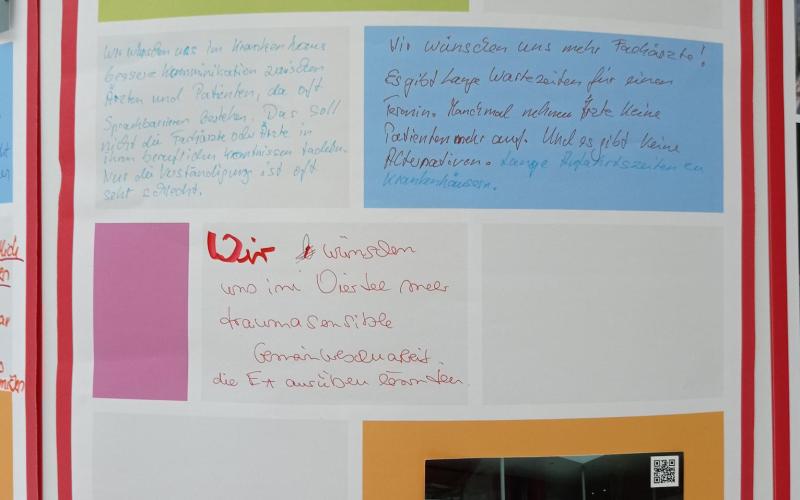 Wir wünschen uns im Krankenhaus
bessere Kommunikation zwischen
Ärzten und Patienten, da oft
Sprachbarrieren bestehen. Das soll
nicht die Fachärzte oder Ärzte in
ihren beruflichen Kenntnissen tadeln.
Nur die Verständigung ist oft
sehr schlecht.
Wir wünschen uns mehr Fachärzte!
Es gibt lange Wartezeiten für einen
Termin. Manchmal nehmen Ärzte keine
Patienten mehr auf. Und es gibt keine
Alternativen. Lange zu
Krankenhäusern.
Wir wünschen
uns im Viertel mehr
traumasensible
Gemeinwesenarbeit.
die E* ausüben könnten.